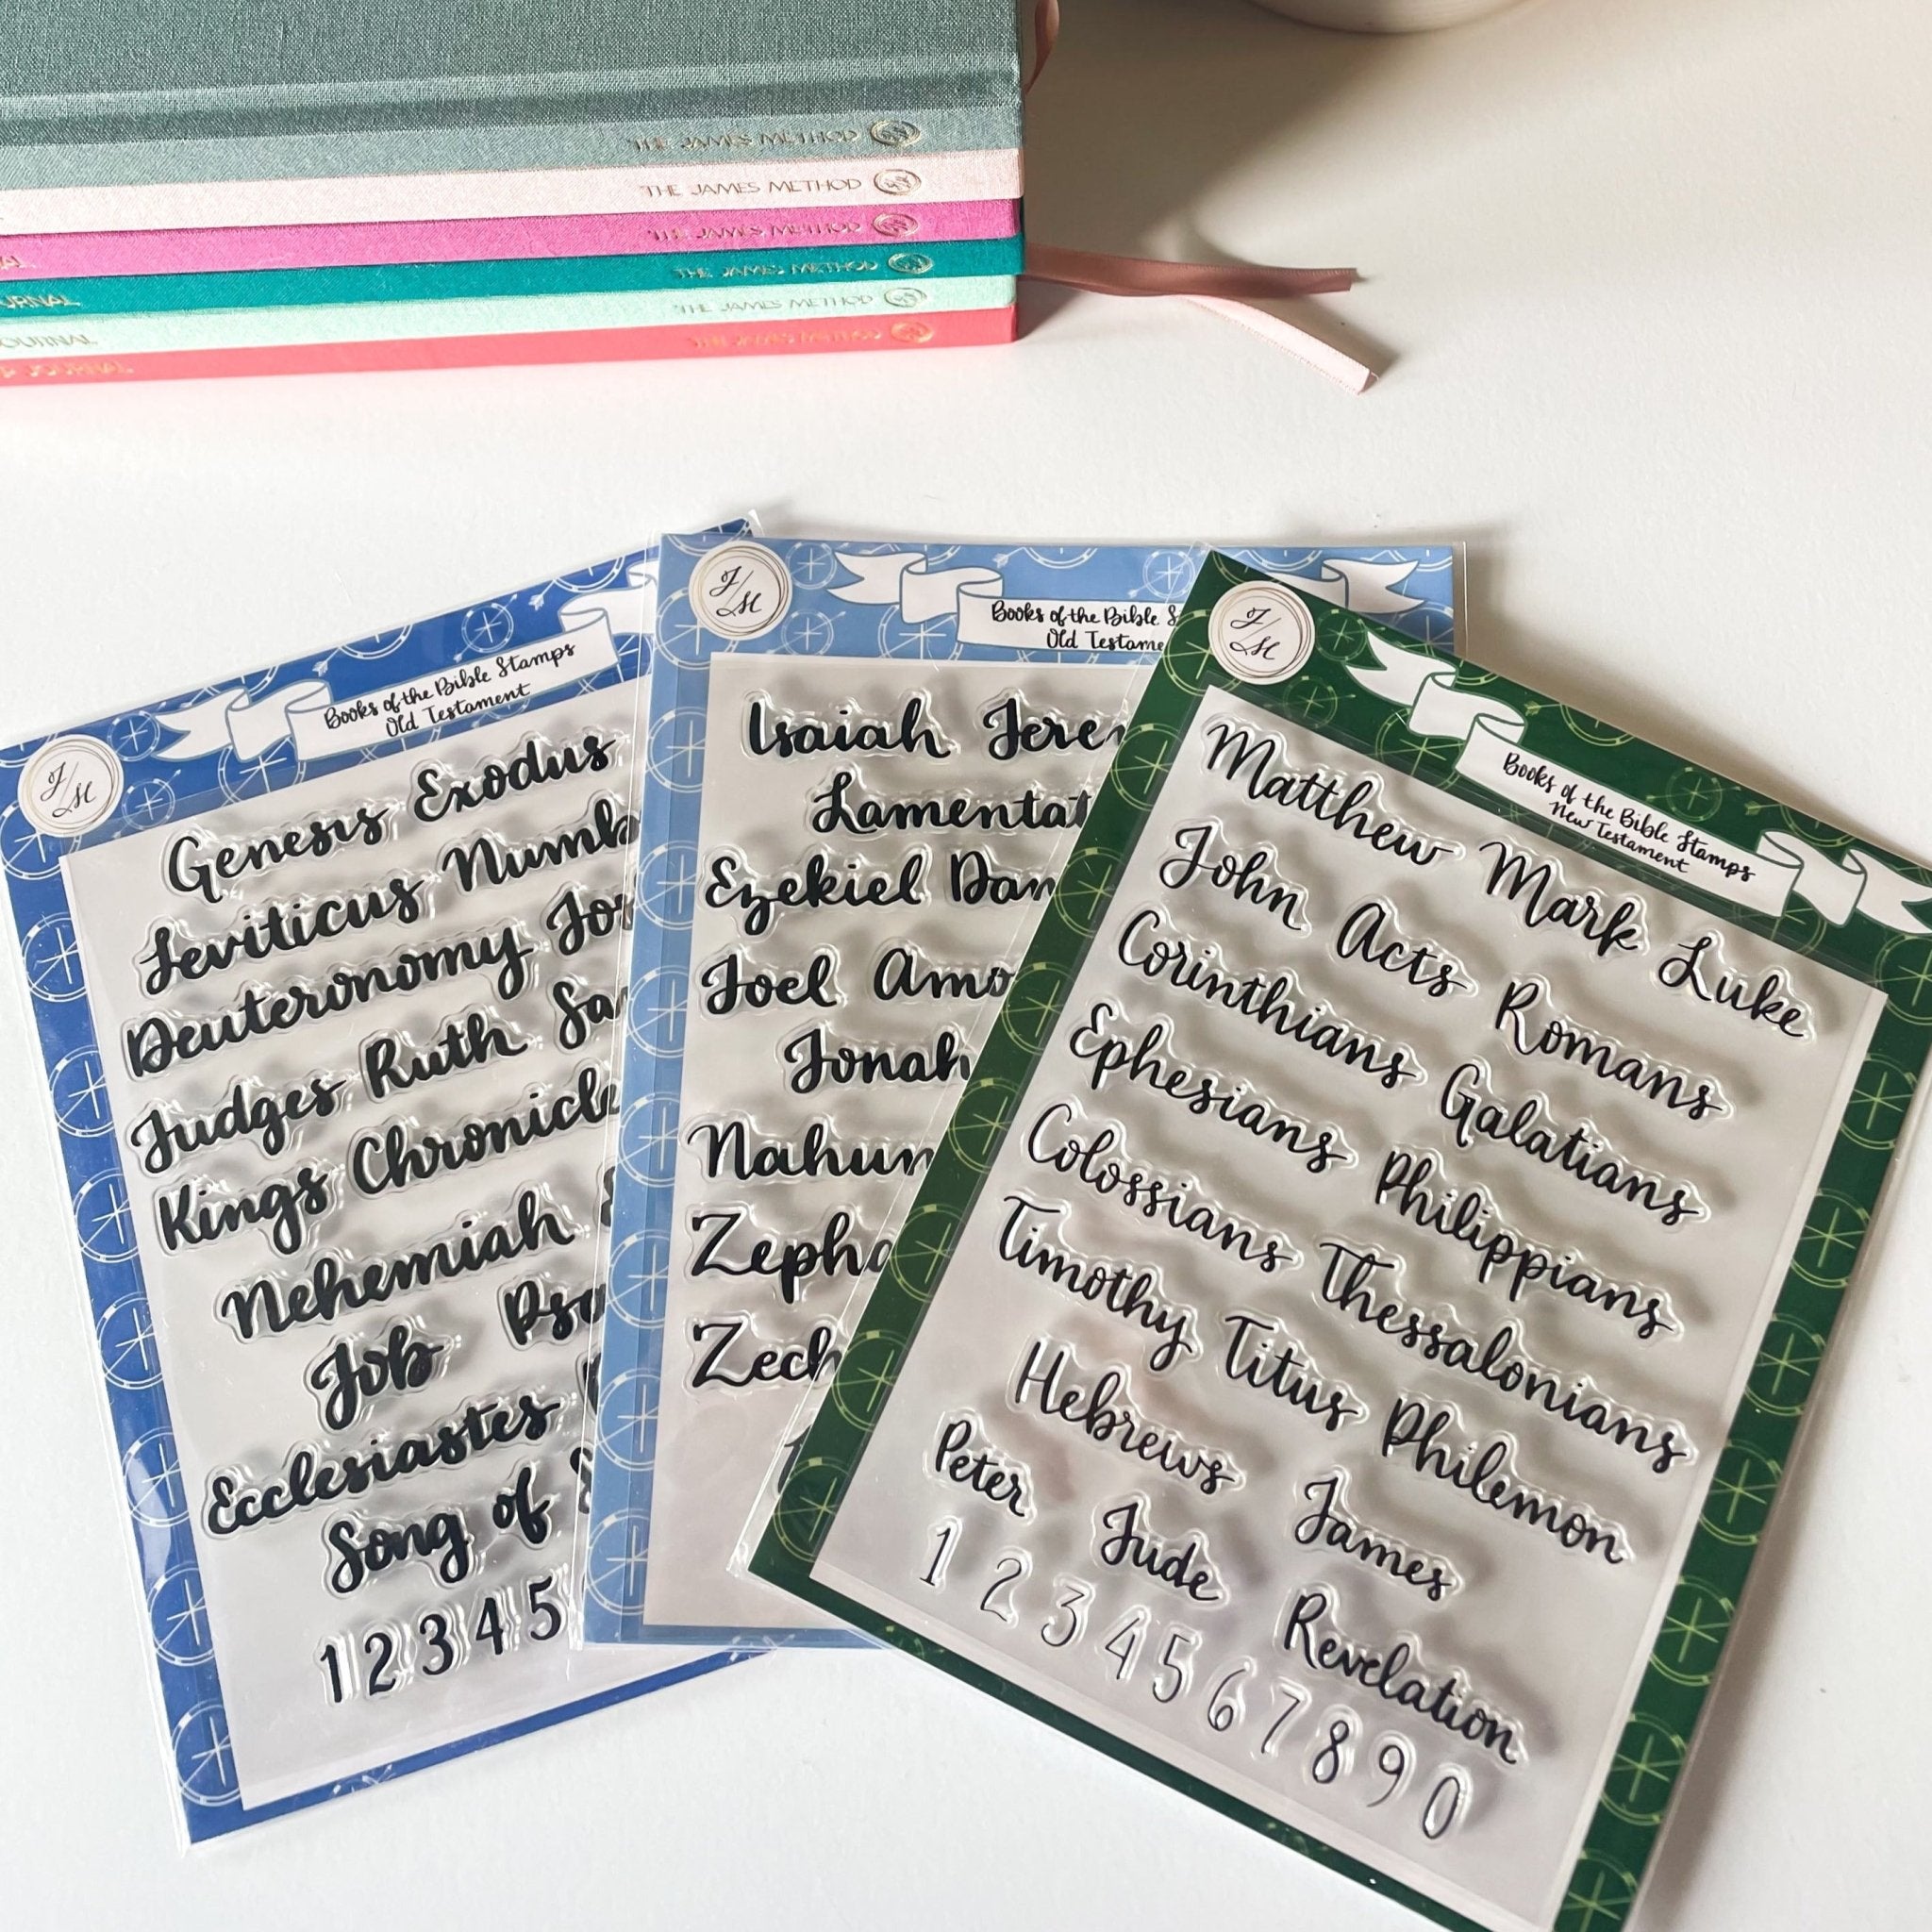 THE JAMES METHOD
THE JAMES METHOD
THE JAMES METHOD
THE JAMES METHOD
JOURNAL
THE JAMES METHOD
JOURNAL
THE JAMES METHOD
Books of the Bible Stamps
Old Testament
J/M
Genesis Exodus
Leviticus Numb
Deuteronomy Jos
Judges Ruth Sa
Kings Chronicle
Nehemiah
Job Psa
Ecclesiastes
Song of
1 2 3 4 5
J/M
Books of the Bible S
Old Testame
Isaiah Jere
Lamentat
Ezekiel Dan
Joel Amo
Jonah
Nahum
Zepha
Zech
J/M
Books of the Bible Stamps
New Testament
Matthew Mark Luke
John Acts Romans
Corinthians Galatians
Ephesians Philippians
Colossians Thessalonians
Timothy Titus Philemon
Hebrews James
Peter Jude Revelation
1 2 3 4 5 6 7 8 9 0